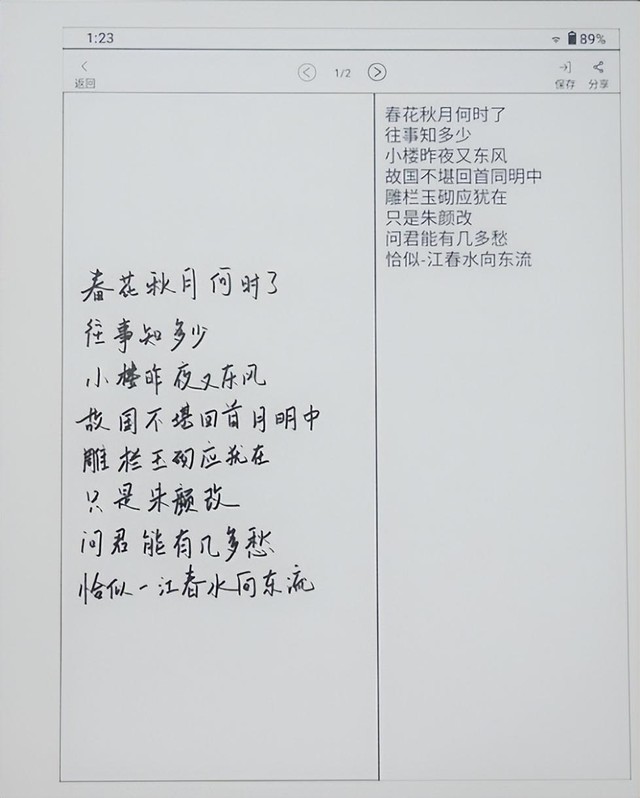 1:23
89%
返回
1/2
保存
分享
春花秋月何时了
往事知多少
小楼昨夜又东风
故国不堪回首月明中
雕栏玉砌应犹在
只是朱颜改
问君能有几多愁
恰似一江春水向东流
春花秋月何时了
往事知多少
小楼昨夜又东风
故国不堪回首同明中
雕栏玉砌应犹在
只是朱颜改
问君能有几多愁
恰似-江春水向东流